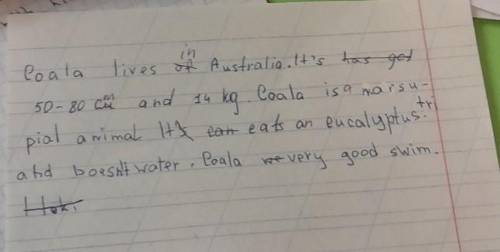 Coala lives in Australia. It's has got
50-80 cm and 14 kg. Coala is a marsu-
pial animal. It's can eats an eucalyptus. tr
and doesn't water. Coala very good swim.